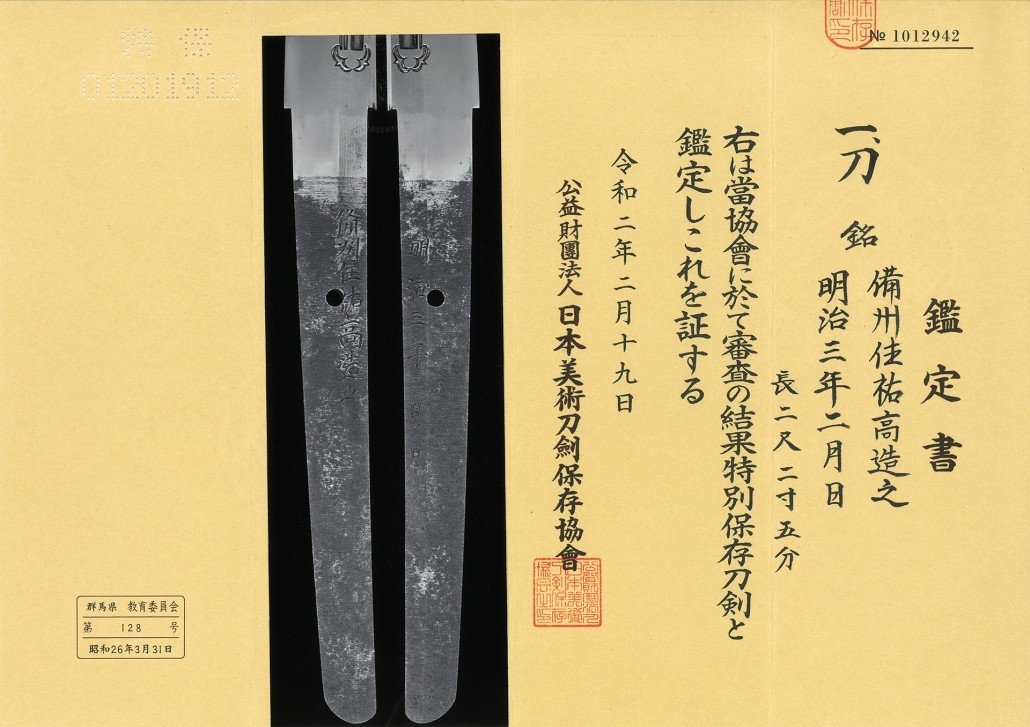 № 1012942
鑑定書
一、刀 銘 備州住祐高造之
明治三年二月日
長二尺二寸五分
右は當協會に於て審査の結果特別保存刀剣と
鑑定しこれを証する
令和二年二月十九日
公益財團法人 日本美術刀劍保存協會
備州住祐高造之
明治三年二月日
特保
01201912
群馬県 教育委員会
第 128 号
昭和26年3月31日